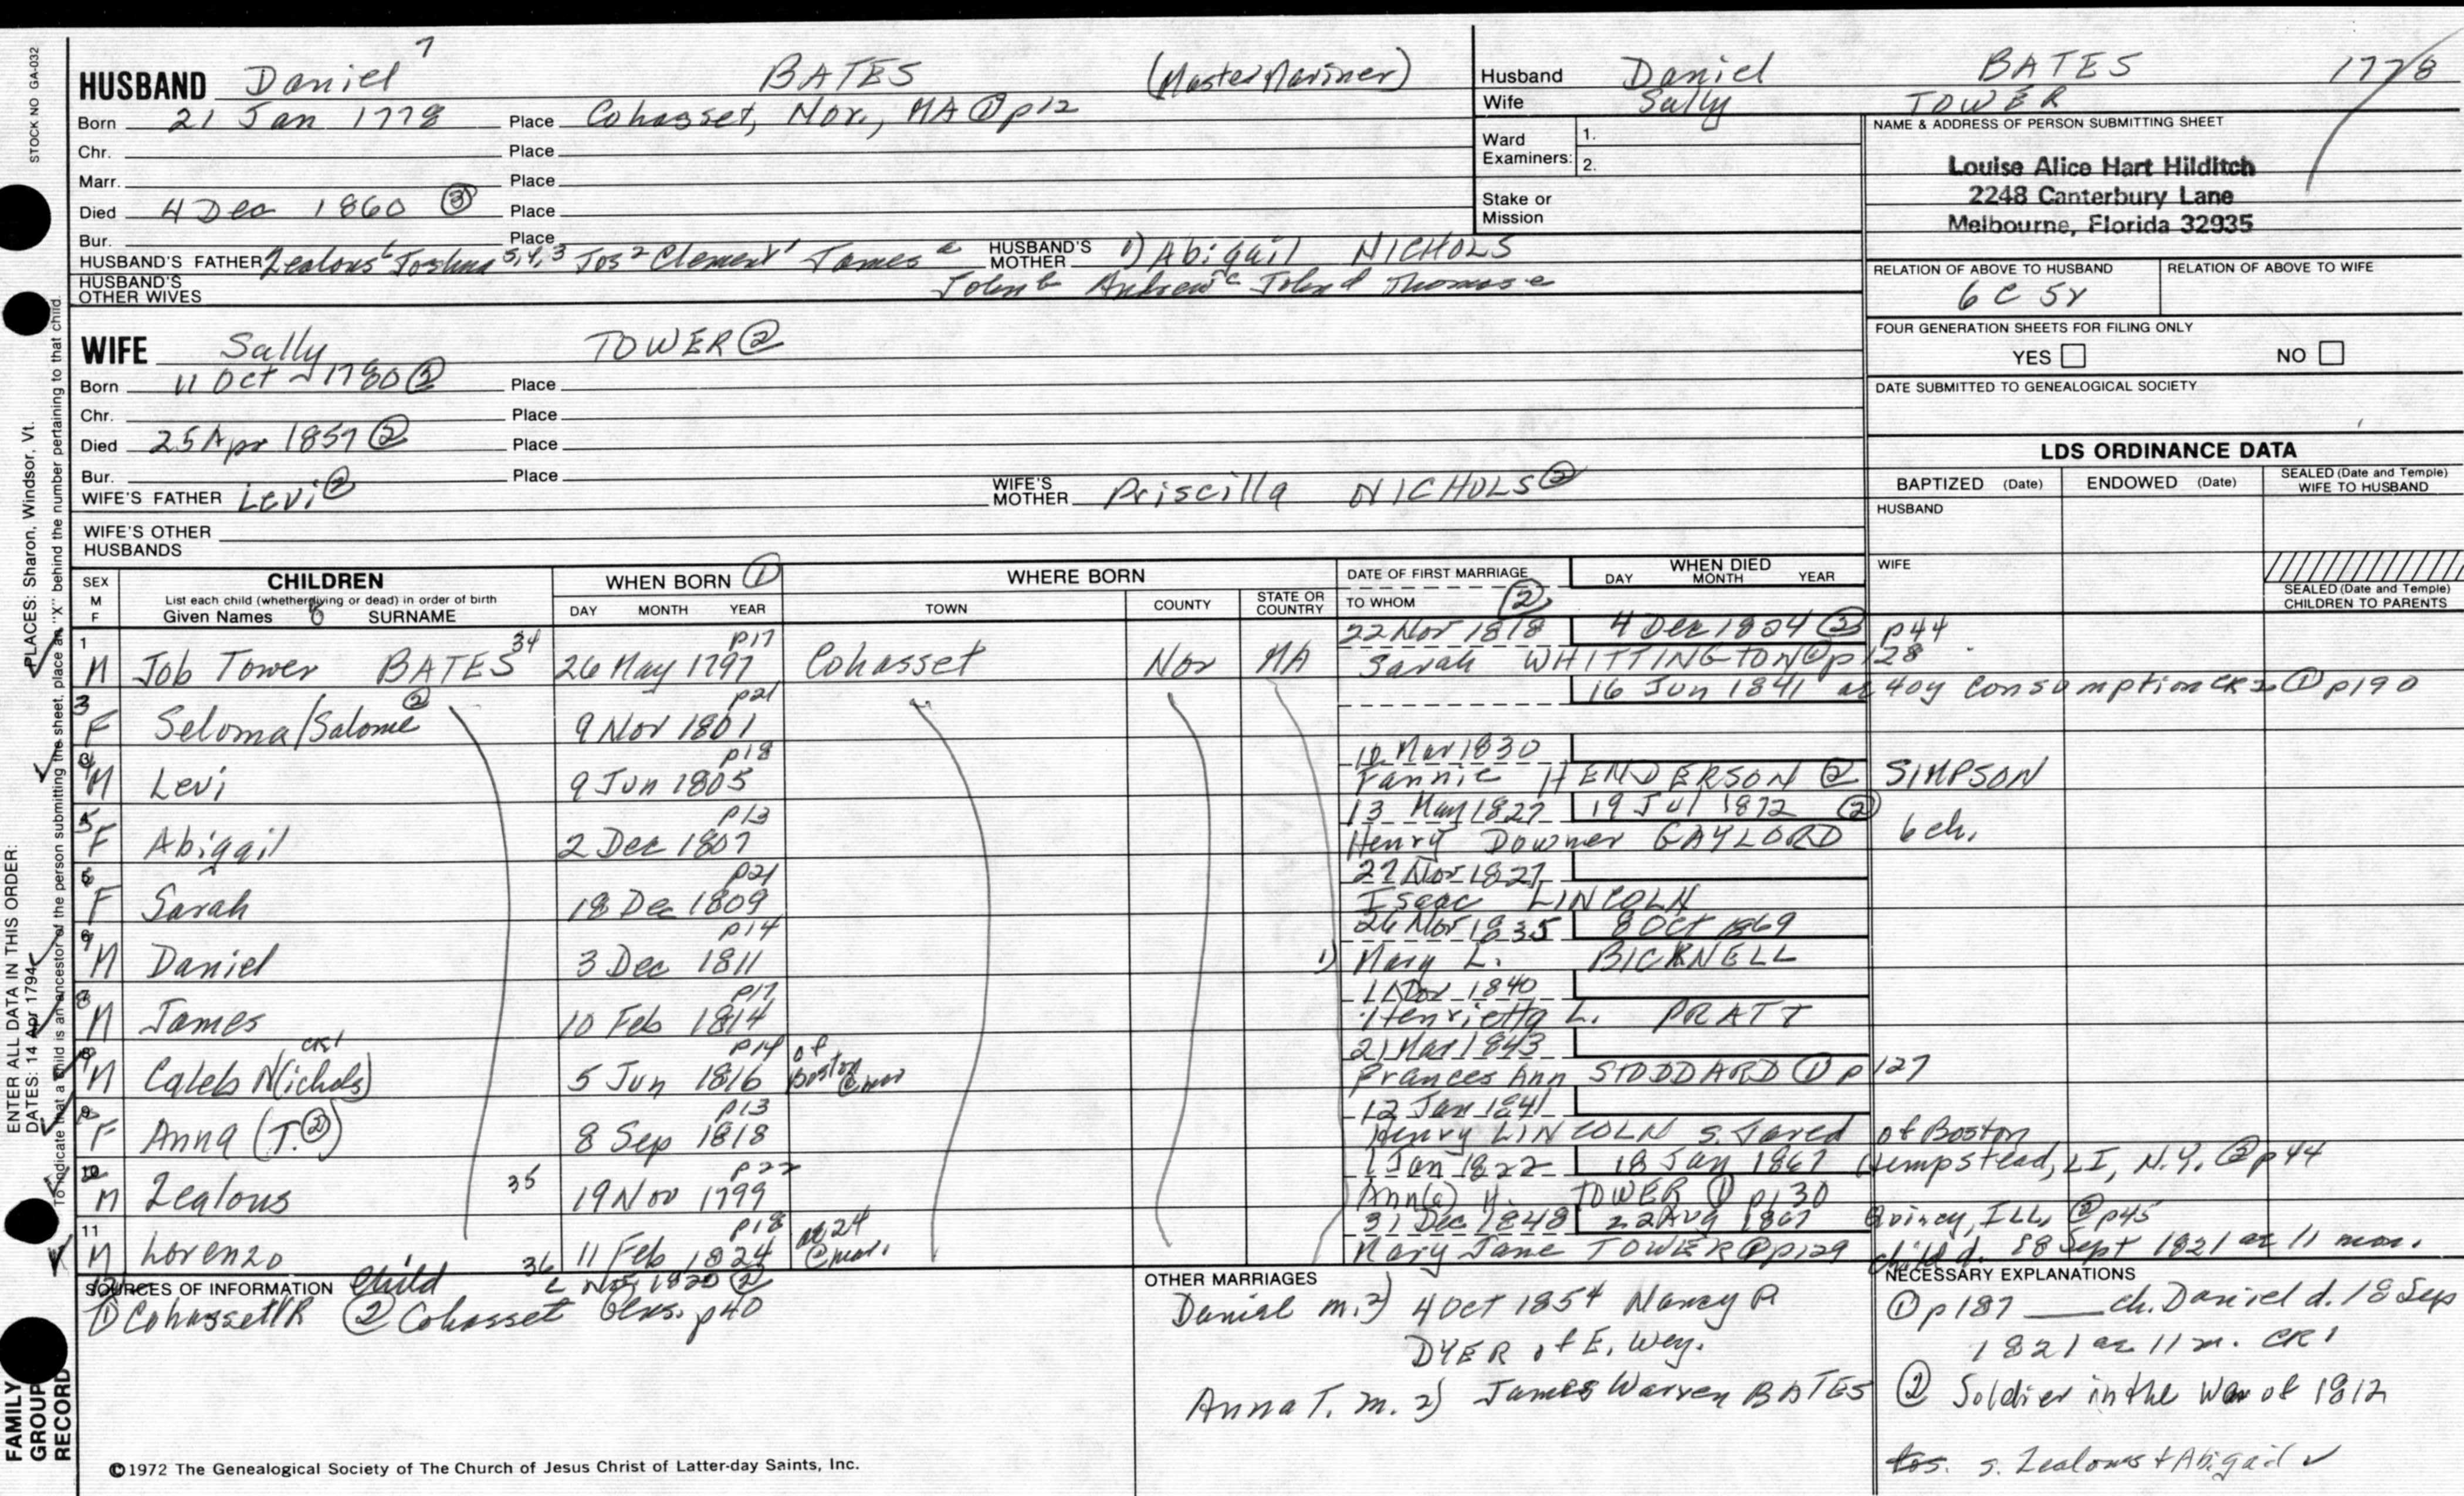 STOCK NO GA-032
HUSBAND Daniel 7 BATES (Master Mariner)
Born 21 Jan 1778 Place Cohasset, Nor., MA ① p12
Chr. Place
Marr. Place
Died 4 Dec 1860 ③ Place
Bur. Place
HUSBAND'S FATHER Zealous 6 Joshua 5,4,3 Jos 2 Clement 1 James a HUSBAND'S MOTHER 1) Abigail NICHOLS
HUSBAND'S OTHER WIVES John b Andrew c John d Thomas e
Husband Daniel BATES 1778
Wife Sally TOWER
Ward Examiners: 1.
2.
Stake or Mission
NAME & ADDRESS OF PERSON SUBMITTING SHEET
Louise Alice Hart Hilditch
2248 Canterbury Lane
Melbourne, Florida 32935
RELATION OF ABOVE TO HUSBAND RELATION OF ABOVE TO WIFE
6 C 5r
FOUR GENERATION SHEETS FOR FILING ONLY
YES NO
DATE SUBMITTED TO GENEALOGICAL SOCIETY
WIFE Sally TOWER ②
Born 11 Oct 1780 ② Place
Chr. Place
Died 25 Apr 1857 ② Place
Bur. Place
WIFE'S FATHER Levi ② WIFE'S MOTHER Priscilla NICHOLS ②
WIFE'S OTHER HUSBANDS
LDS ORDINANCE DATA
BAPTIZED (Date) ENDOWED (Date) SEALED (Date and Temple) WIFE TO HUSBAND
HUSBAND
WIFE
SEALED (Date and Temple) CHILDREN TO PARENTS
SEX M F CHILDREN List each child (whether living or dead) in order of birth Given Names SURNAME
WHEN BORN ① DAY MONTH YEAR
WHERE BORN TOWN COUNTY STATE OR COUNTRY
DATE OF FIRST MARRIAGE TO WHOM ②
WHEN DIED DAY MONTH YEAR
p17 22 Nov 1818 4 Dec 1824 ② p44
1 M Job Tower BATES 34 26 May 1797 Cohasset Nor MA Sarah WHITTINGTON ① p128
p21 16 Jun 1841 ae 40y consumption ① p190
3 F Seloma/Salome ② 9 Nov 1801
p18 10 Mar 1830
M Levi 9 Jun 1805 Fannie HENDERSON ② SIMPSON
p13 13 May 1827 19 Jul 1872 ②
5 F Abigail 2 Dec 1807 Henry Downer GAYLORD 6 ch.
p21 27 Nov 1827
F Sarah 18 Dec 1809 Isaac LINCOLN
p14 26 Nov 1835 8 Oct 1869
M Daniel 3 Dec 1811 1) Mary L. BICKNELL
p17 1840
M James 10 Feb 1814 Henrietta L. PRATT
p14 21 Mar 1843
M Caleb N(ichols) CR1 5 Jun 1816 of Boston Frances Ann STODDARD ① p127
p13 12 Jan 1841
F Anna (T. ②) 8 Sep 1818 Henry LINCOLN s. Jared of Boston
p22 1 Jan 1822 18 Jan 1867 Hempstead, LI, N.Y. ② p44
M Zealous 35 19 Nov 1799 Ann(a) H. TOWER ① p130
p18 31 Dec 1848 22 Aug 1867 Quincy, ILL ② p45
11 M Lorenzo 36 11 Feb 1824 ae 24 @mar. Mary Jane TOWER ① p129
child d. 18 Sept 1821 ae 11 mos.
12 Child Nov 1820 ②
SOURCES OF INFORMATION
① Cohasset VR ② Cohasset Gens. p40
OTHER MARRIAGES
Daniel m. 2) 4 Oct 1854 Nancy P
DYER of E. Wey.
Anna T. m. 2) James Warren BATES
NECESSARY EXPLANATIONS
① p187 ch. Daniel d. 18 Sep
1821 ae 11 m. CR1
② Soldier in the War of 1812
s. Zealous + Abigail
ENTER ALL DATA IN THIS ORDER:
DATES: 14 Apr 1794
PLACES: Sharon, Windsor, Vt.
To indicate that a child is an ancestor of the person submitting the sheet, place an "X" behind the number pertaining to that child.
FAMILY GROUP RECORD
©1972 The Genealogical Society of The Church of Jesus Christ of Latter-day Saints, Inc.